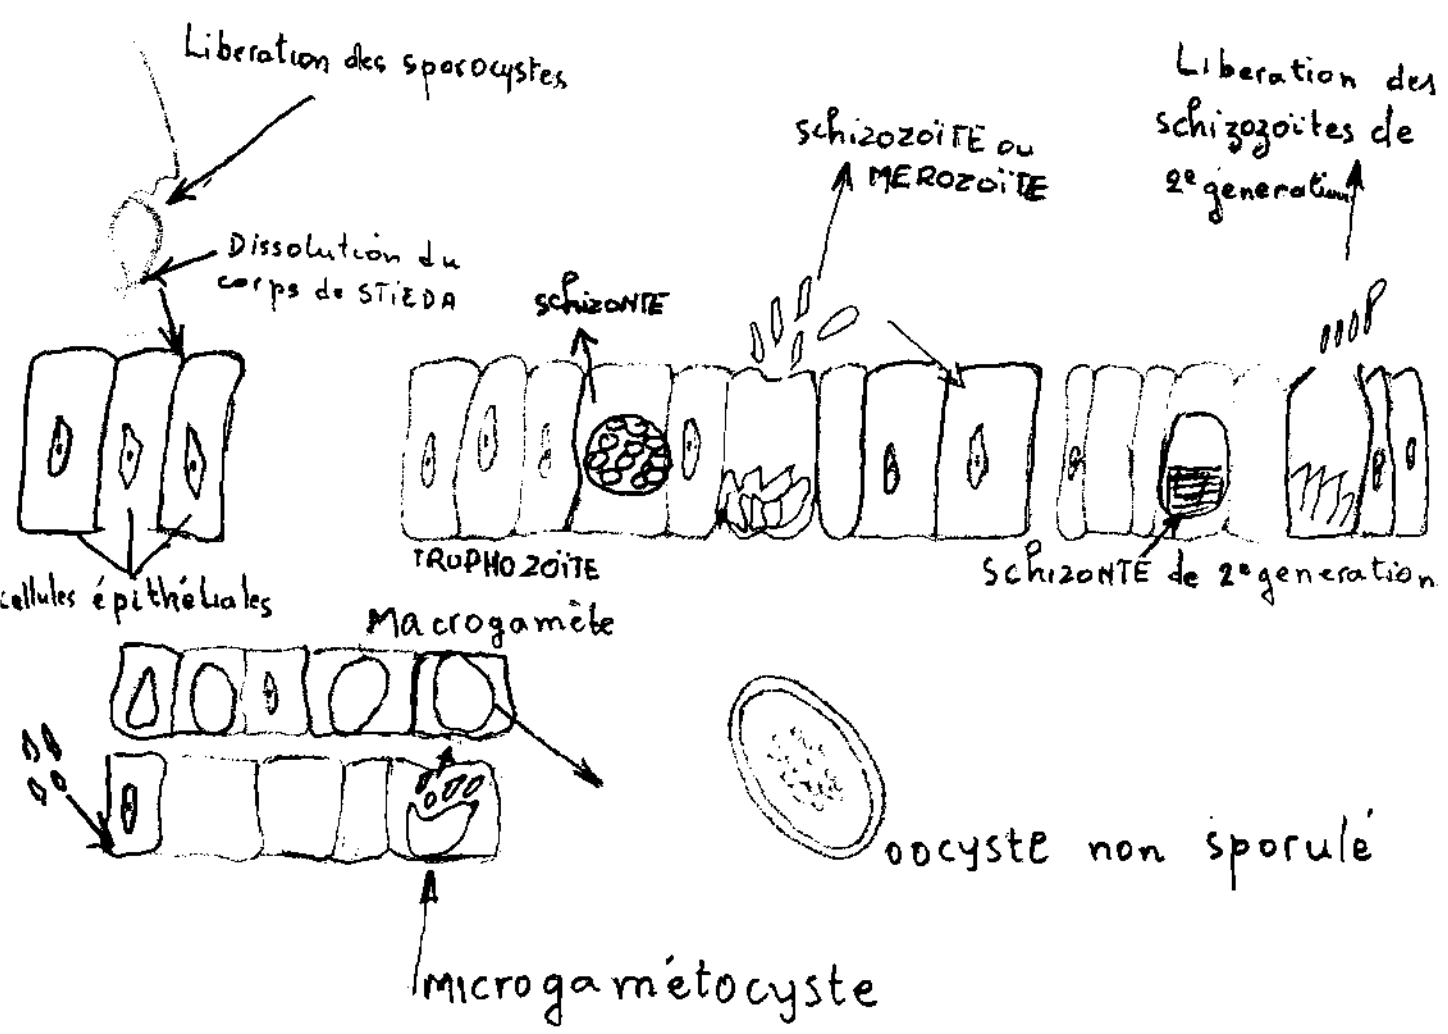 Liberation des sporocystes
Dissolution du
corps de STIEDA
schizonte
schizozoïte ou
MEROZOÏTE
Liberation des
schizozoïtes de
2e generation
TROPHOZOÏTE
schizonte de 2e generation
cellules épithéliales
Macrogamète
oocyste non sporulé
microgamétocyste